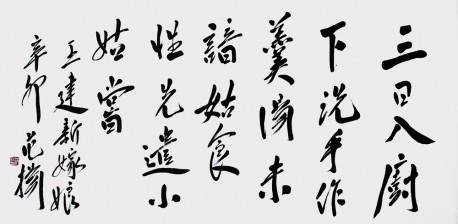 三日入廚
下洗手作
羹湯未
諳姑食
性先遣小
姑嘗
王建新嫁娘
辛卯范